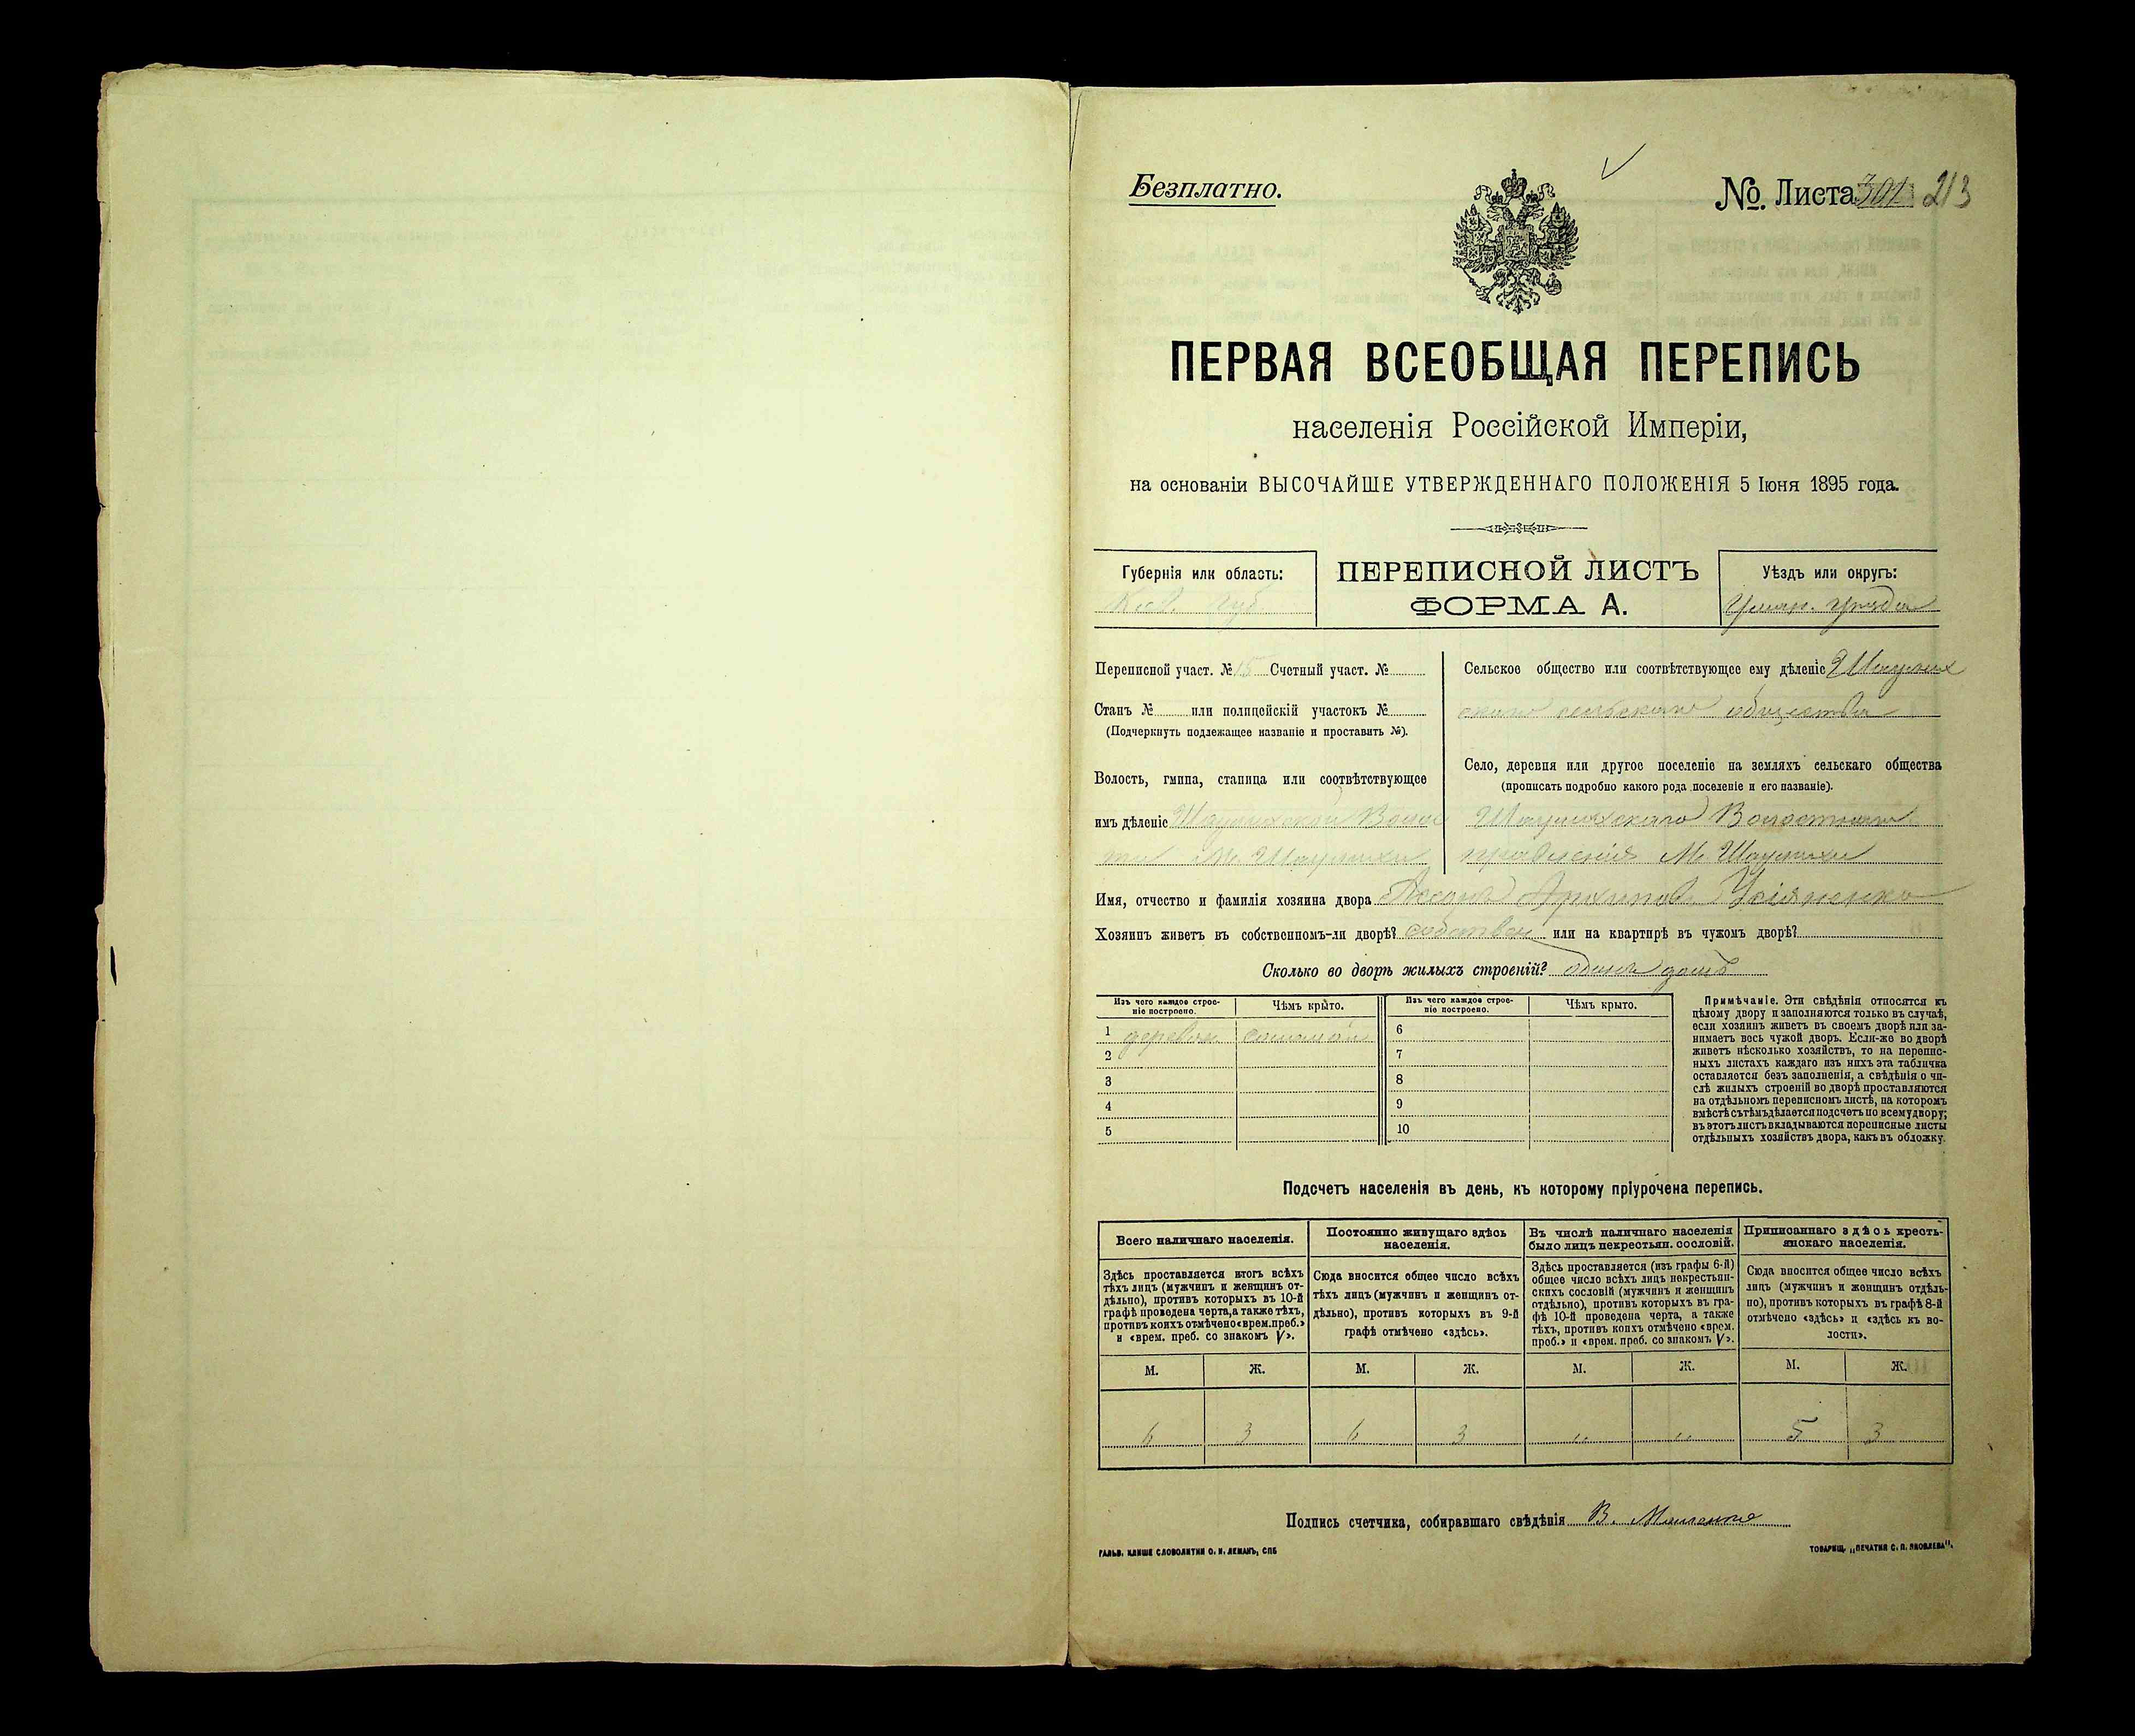 Безплатно.
№. Листа 213
ПЕРВАЯ ВСЕОБЩАЯ ПЕРЕПИСЬ
населенія Россійской Имперіи,
на основаніи ВЫСОЧАЙШЕ УТВЕРЖДЕННАГО ПОЛОЖЕНІЯ 5 Іюня 1895 года.
Губернія или область:
Кіев. Губ.
ПЕРЕПИСНОЙ ЛИСТЪ
ФОРМА А.
Уѣздъ или округъ:
Уман. уѣзда
Переписной участ. № 15 Счетный участ. №
Станъ № или полицейскій участокъ №
(Подчеркнуть подлежащее названіе и проставить №).
Волость, гмина, станица или соотвѣтствующее
имъ дѣленіе Шаулихской Волос
ти М. Шаулихи
Сельское общество или соотвѣтствующее ему дѣленіе Шаулих
скаго сельскаго общества
Село, деревня или другое поселеніе на земляхъ сельскаго общества
(прописать подробно какого рода поселеніе и его названіе).
Шаулихскаго Волостного
правленія М. Шаулихи
Имя, отчество и фамилія хозяина двора Архипов
Хозяинъ живетъ въ собственномъ-ли дворѣ? собствен или на квартирѣ въ чужомъ дворѣ?
Сколько во дворѣ жилыхъ строеній? одинъ домъ
Изъ чего каждое строе-
ніе построено.
Чѣмъ крыто.
Изъ чего каждое строе-
ніе построено.
Чѣмъ крыто.
1 деревян соломой
2
3
4
5
6
7
8
9
10
Примѣчаніе. Эти свѣдѣнія относятся къ
цѣлому двору и заполняются только въ случаѣ,
если хозяинъ живетъ въ своемъ дворѣ или за-
нимаетъ весь чужой дворъ. Если-же во дворѣ
живетъ нѣсколько хозяйствъ, то на перепис-
ныхъ листахъ каждаго изъ нихъ эта табличка
оставляется безъ заполненія, а свѣдѣнія о чи-
слѣ жилыхъ строеній во дворѣ проставляются
на отдѣльномъ переписномъ листѣ, на которомъ
вмѣстѣ съ тѣмъ дѣлается подсчетъ по всему двору;
въ этотъ листъ вкладываются переписные листы
отдѣльныхъ хозяйствъ двора, какъ въ обложку.
Подсчетъ населенія въ день, къ которому пріурочена перепись.
Всего наличнаго населенія.
Здѣсь проставляется итогъ всѣхъ
тѣхъ лицъ (мужчинъ и женщинъ от-
дѣльно), противъ которыхъ въ 10-й
графѣ проведена черта, а также тѣхъ,
противъ коихъ отмѣчено «врем. преб.»
и «врем. преб. со знакомъ V».
Постоянно живущаго здѣсь
населенія.
Сюда вносится общее число всѣхъ
тѣхъ лицъ (мужчинъ и женщинъ от-
дѣльно), противъ которыхъ въ 9-й
графѣ отмѣчено «здѣсь».
Въ числѣ наличнаго населенія
было лицъ некрестьян. сословій.
Здѣсь проставляется (изъ графы 6-й)
общее число всѣхъ лицъ некрестьян-
скихъ сословій (мужчинъ и женщинъ
отдѣльно), противъ которыхъ въ гра-
фѣ 10-й проведена черта, а также
тѣхъ, противъ коихъ отмѣчено «врем.
преб.» и «врем. преб. со знакомъ V».
Приписаннаго здѣсь кресть-
янскаго населенія.
Сюда вносится общее число всѣхъ
лицъ (мужчинъ и женщинъ отдѣль-
но), противъ которыхъ въ графѣ 8-й
отмѣчено «здѣсь» и «здѣсь къ во-
лости».
М. Ж. М. Ж. М. Ж. М. Ж.
6 3 6 3 " " 5 3
Подпись счетчика, собиравшаго свѣдѣнія В.
ГАЛЬВ. КЛИШЕ СЛОВОЛИТНИ О. И. ЛЕМАНЪ, СПБ
ТОВАРИЩ. „ПЕЧАТНЯ С. П. ЯКОВЛЕВА".